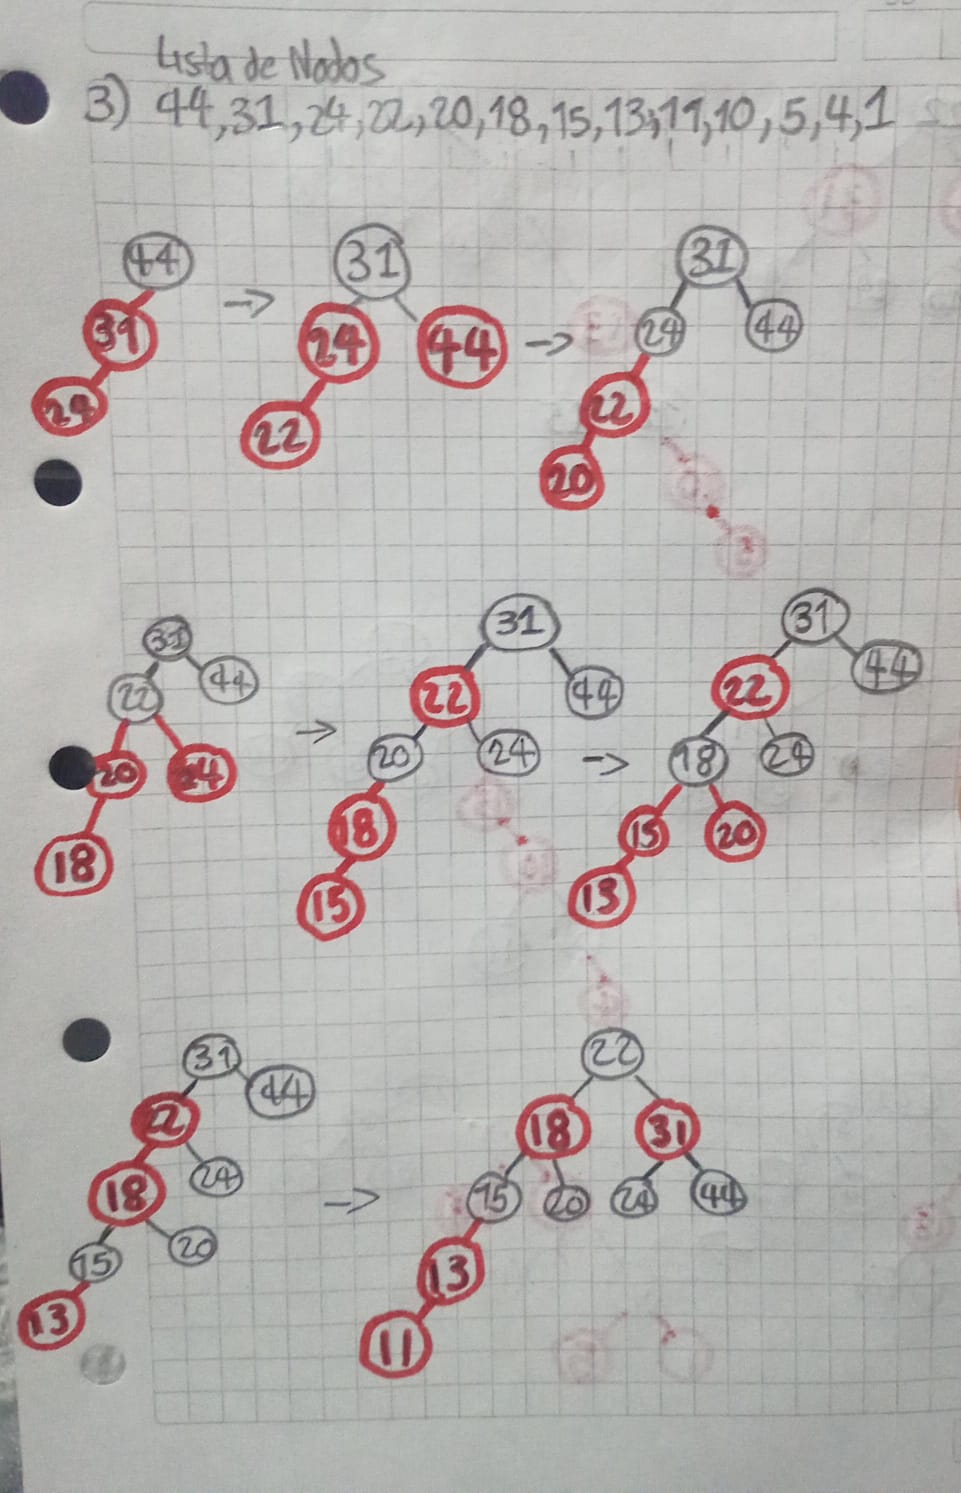 Lista de Nodos
3) 44,31,24,22,20,18,15,13,11,10,5,4,1
44
31
24
→
31
24
44
22
→
31
24
44
22
20
31
22
44
20
24
18
→
31
22
44
20
24
18
15
→
31
22
44
18
24
15
20
13
31
44
22
24
18
20
15
13
→
22
18
31
15
20
24
44
13
11